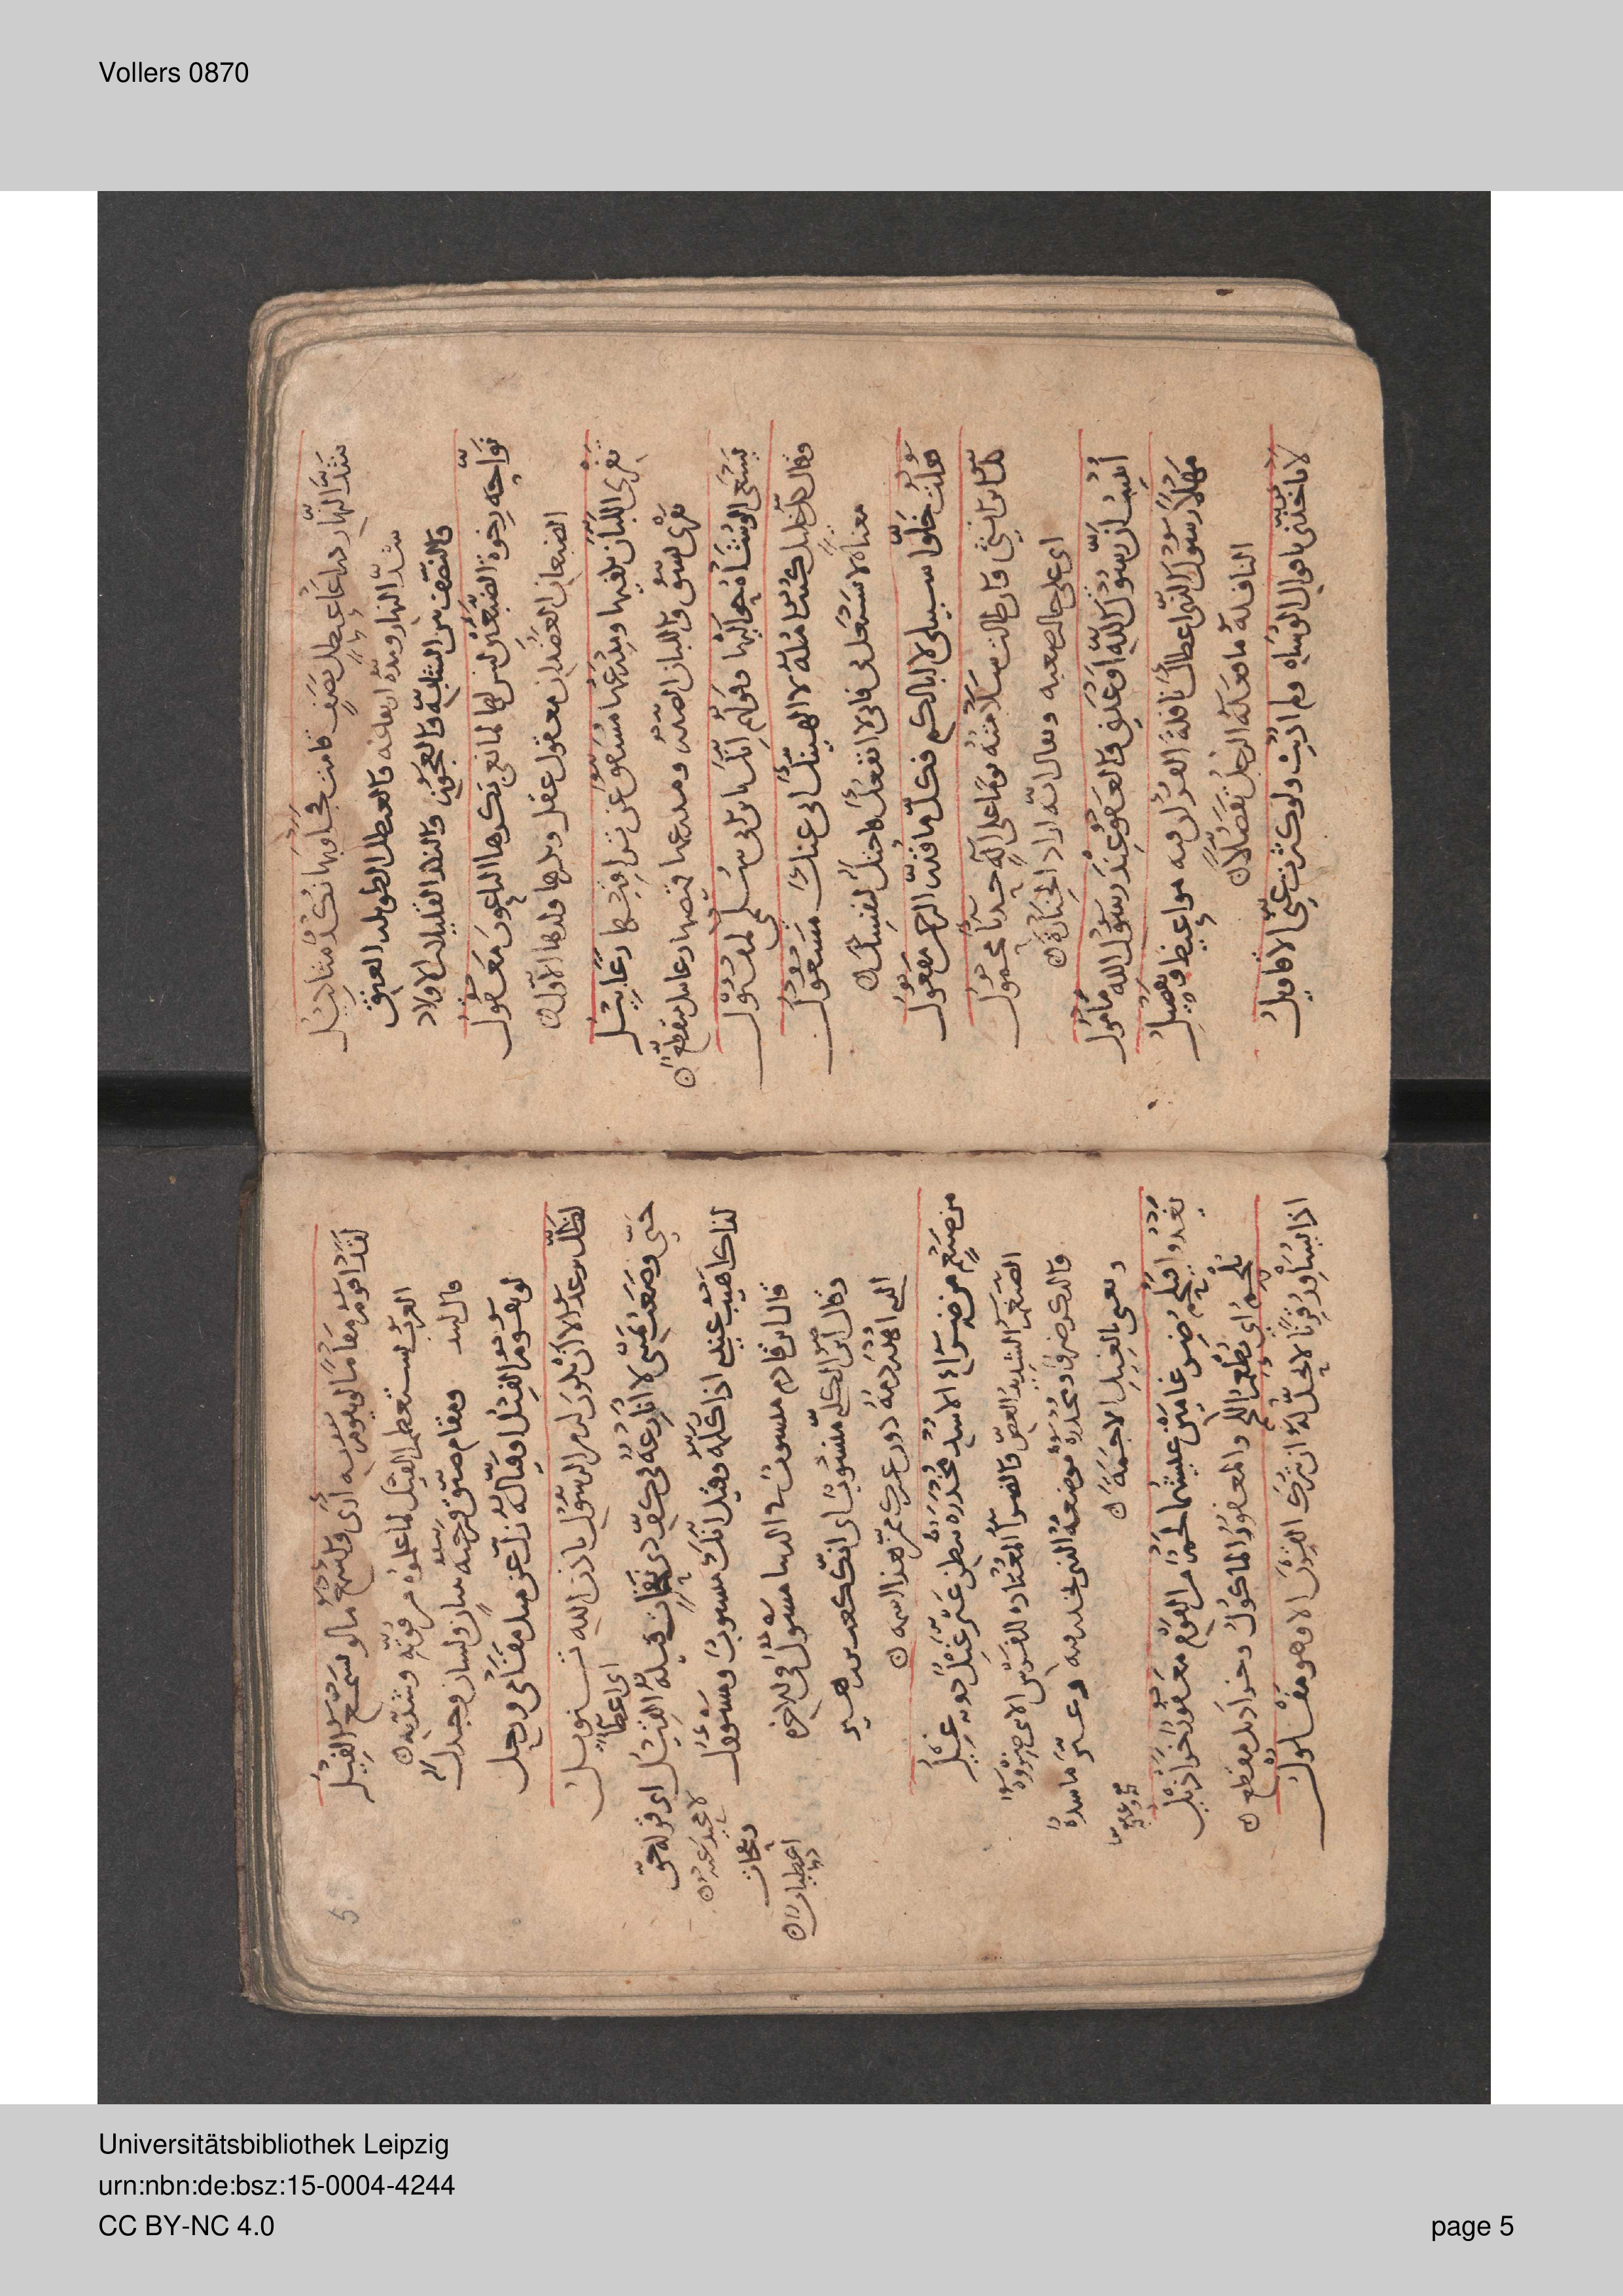 شَدَّ النهار ذراعا عيطل نصف قامت فجاوبها نكد مثاكيل
شد النهار ومده ارتفاعه والعيطل الطويلة العنق
والنصف والعجوز والنكد القليلات الاولاد
نواحة رخوة الضبعين ليس لها لما نعى بكرها الناعون معقول
الضبعان العضدان معقول عقل وبكرها ولدها الاول
تفرى اللبان بكفيها ومدرعها مشقق عن تراقيها رعابيل
تفرى تشق واللبان الصدر ومدرعها قميصها رعابيل مقطع
يسعى الوشاة اليها وقولهم انك يا بن ابى سلمى لمقتول
وقال كل خليل كنت آمله لا الهينك انى عنك مشغول
معناه لا تشتغل بى فانى لا انفعك فاحتل لنفسك
فقلت خلوا سبيلى لا ابالكم فكل ما قدر الرحمن مفعول
كل ابن انثى وان طالت سلامته يوما على آلة حدبا محمول
اى على حال صعبه ويقال انه اراد الجنازة
أنبئت ان رسول الله اوعدنى والعفو عند رسول الله مأمول
مهلا رسول الذى اعطاك نافلة القرآن فيه مواعيظ وتفصيل
النافلة ما فعله الرجل تفضلا
لا تاخذنى باقوال الوشاه ولم اذنب ولو كثرت عنى الاقاويل
لقد اقوم مقاما لو يقوم به ارى واسمع ما لو يسمع الفيل
العرب تستعظم الفيل لما علموا من قوته وشدته
قال لبيد ومقام ضيق فرجته ببيان ولسان وجدل
لو يقوم الفيل او فياله زل عن مثل مقامى وزحل
لظل يرعد الا ان يكون له من الرسول باذن الله تنويل
اى اعطا
حتى وضعت يمينى لا انازعه فى كف ذى نقمات قيله القيل اى قوله حق
لذاك اهيب عندى اذ اكلمه وقيل انك منسوب ومسئول
قال ابن قادم منسوب فى الدنيا مسئول فى الاخره
وقال ابن الكلبى منسوب اى انك كعب بن زهير
من ضيغم من ضراء الاسد مخدره ببطن عثر غيل دونه غيل
الضيغم الشديد العض والضراء المعتاده للفرس
ويعنى بالغيل الاجمة
يغدو فيلحم ضرغامين عيشهما لحم من القوم معفور خراذيل
يلحم اى يطعم اللحم والمعفور الماكول وخراذيل مقطع
اذا يساور قرنا لا يحل له ان يترك القرن الا وهو مفلول
Vollers 0870
Universitätsbibliothek Leipzig
urn:nbn:de:bsz:15-0004-4244
CC BY-NC 4.0
page 5